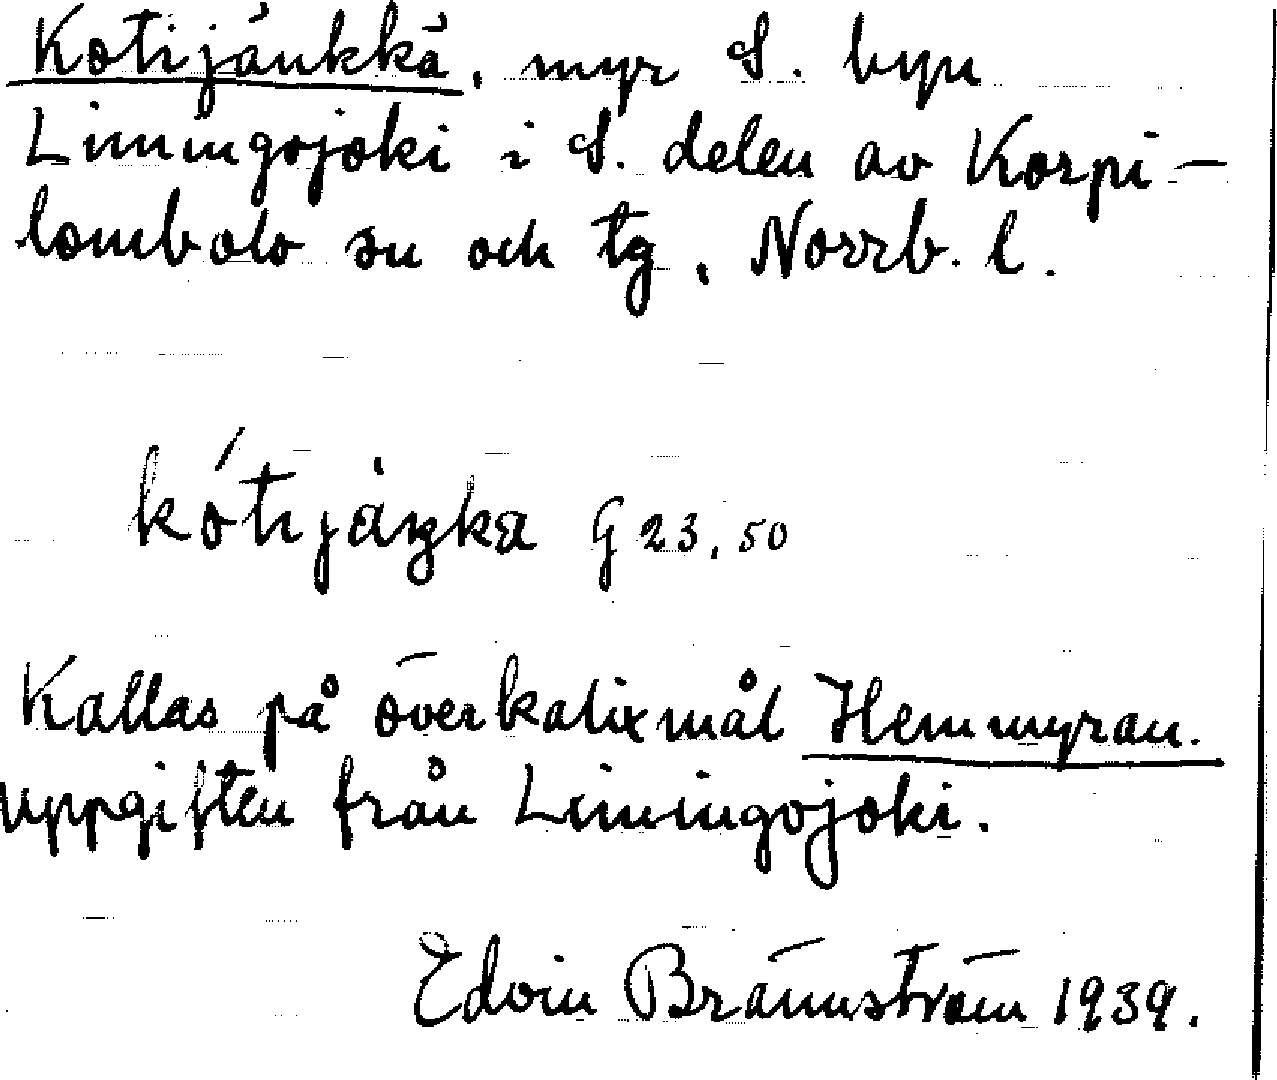 Kotijänkkä, myr S. byn
Limingojoki i S. delen av Korpi-
lombolo sn och tg, Norrb. l.
kótijäŋka G 23,50
Kallas på överkalixmål Hemmyran.
uppgiften från Limingojoki.
Edvin Brännström 1939.